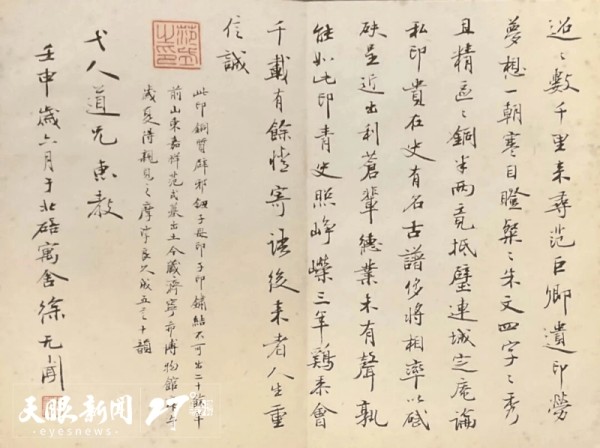 迢〻數千里来尋范巨卿遺印勞
夢想一朝寓目瞠粲〻朱文四字〻秀
且精區〻銅半兩竟抵璧連城定庵論
私印貴在史有名古譜侈將相率以碔
砆呈近出利蒼輩德業未有聲孰
能如此印青史照崢嶸三年鷄黍會
千載有餘情寄語後来者人生重
信誠
范式之印
此印銅質辟邪鈕子母印子印鏽結不可出二十餘年
前山東嘉祥范式墓出土今藏濟寧市博物館
歲夏得親見之摩挲良久成五言十韻
弋人道兄惠教
壬申歲六月于北碚寓舍徐无聞
天眼新闻 27°
-eyesnews-